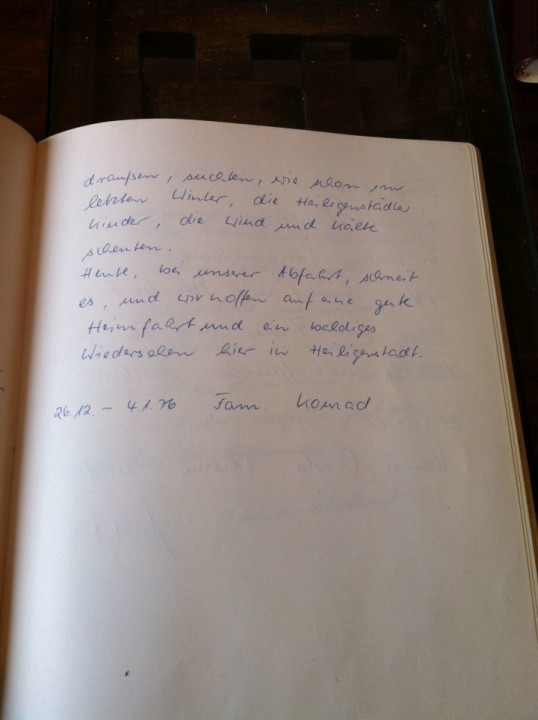 draußen, suchten, wie schon im
letzten Winter, die Heiligenstädter
Kinder, die Wind und Kälte
scheuten.
Heute, bei unserer Abfahrt, schneit
es, und wir hoffen auf eine gute
Heimfahrt und ein baldiges
Wiedersehen hier in Heiligenstadt.
26.12. – 4.1.76 Fam. Konrad